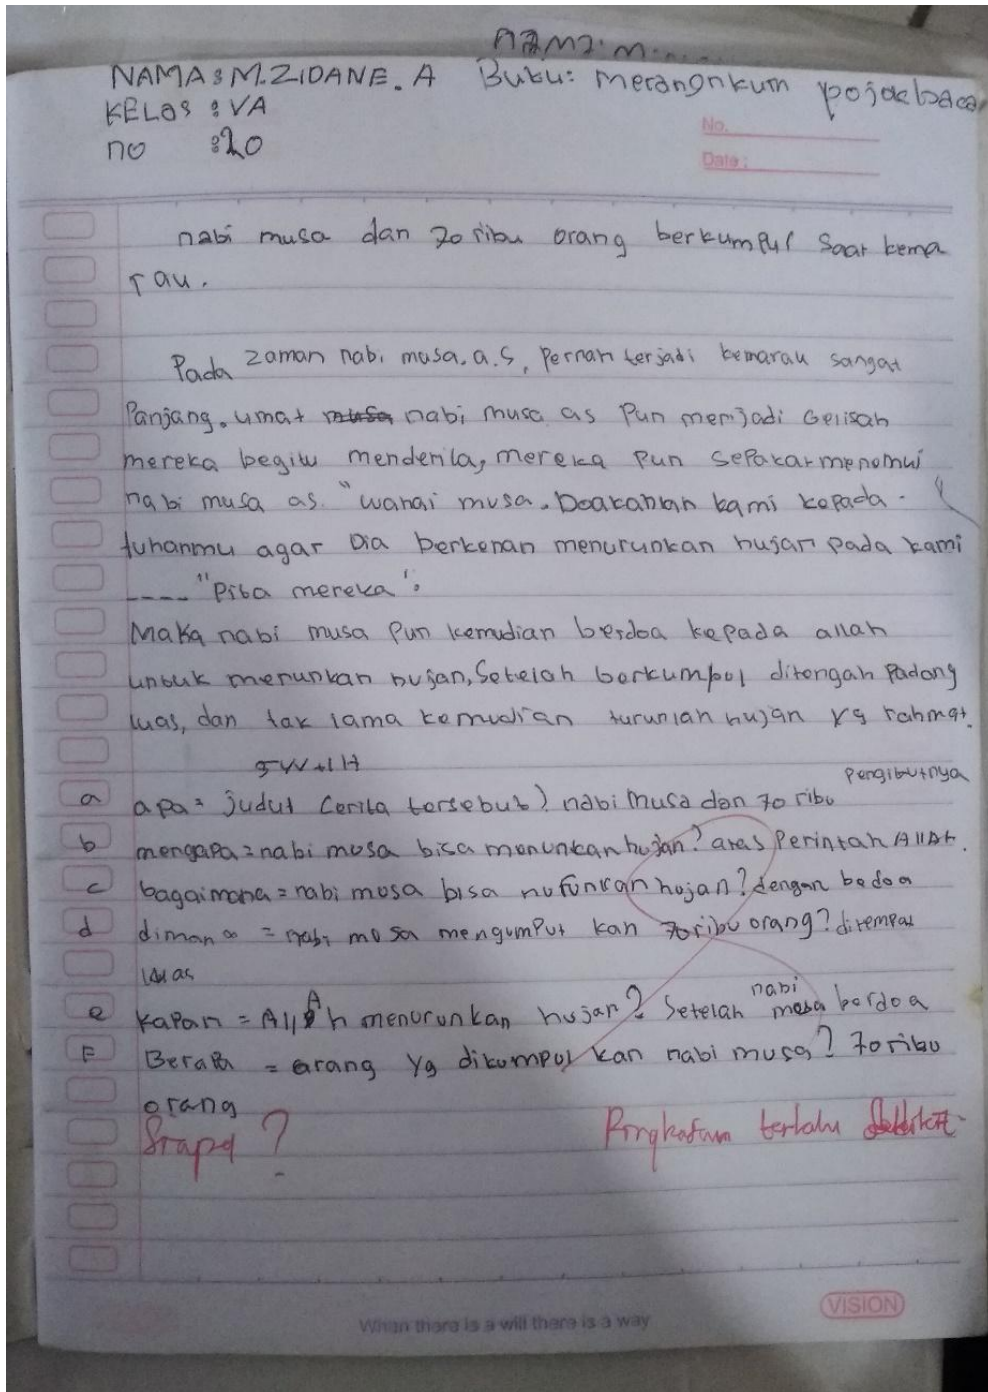 nama: m.....
NAMA : M.ZIDANE. A Buku: merangnkum pojokbaca
KELAS : VA
no : 20
No.
Date :
nabi musa dan 70 ribu orang berkumpul saat kema
rau.
Pada zaman nabi musa. a.s, pernah terjadi kemarau sangat
Panjang. umat musa nabi musa as pun menjadi Gelisah
mereka begitu menderita, mereka pun sepakat menemui
nabi musa as. "wahai musa. Doakanlan kami kepada -
tuhanmu agar Dia berkenan menurunkan hujan pada kami
---- "Pita mereka".
Maka nabi musa pun kemudian berdoa kepada allah
untuk menunkan hujan, Setelah berkumpul ditengah Padang
luas, dan tak lama kemudian turunlah hujan yg rahmat.
5W+1H
a apa = judul Cerita tersebut? nabi Musa dan 70 ribu Pengikutnya
b mengapa = nabi musa bisa menunkan hujan? atas Perintah AllAh.
c bagaimana = nabi musa bisa hujan? dengan bedoa
d dimana = nabi musa mengumpul kan 70ribu orang? ditempat
luas
e Kapan = AllAh menurunkan hujan? Setelah nabi musa berdoa
F Berapa = orang yg dikumpul kan nabi musa? 70ribu
orang
Siapa ? Ringkasan terlalu
When there is a will there is a way
VISION